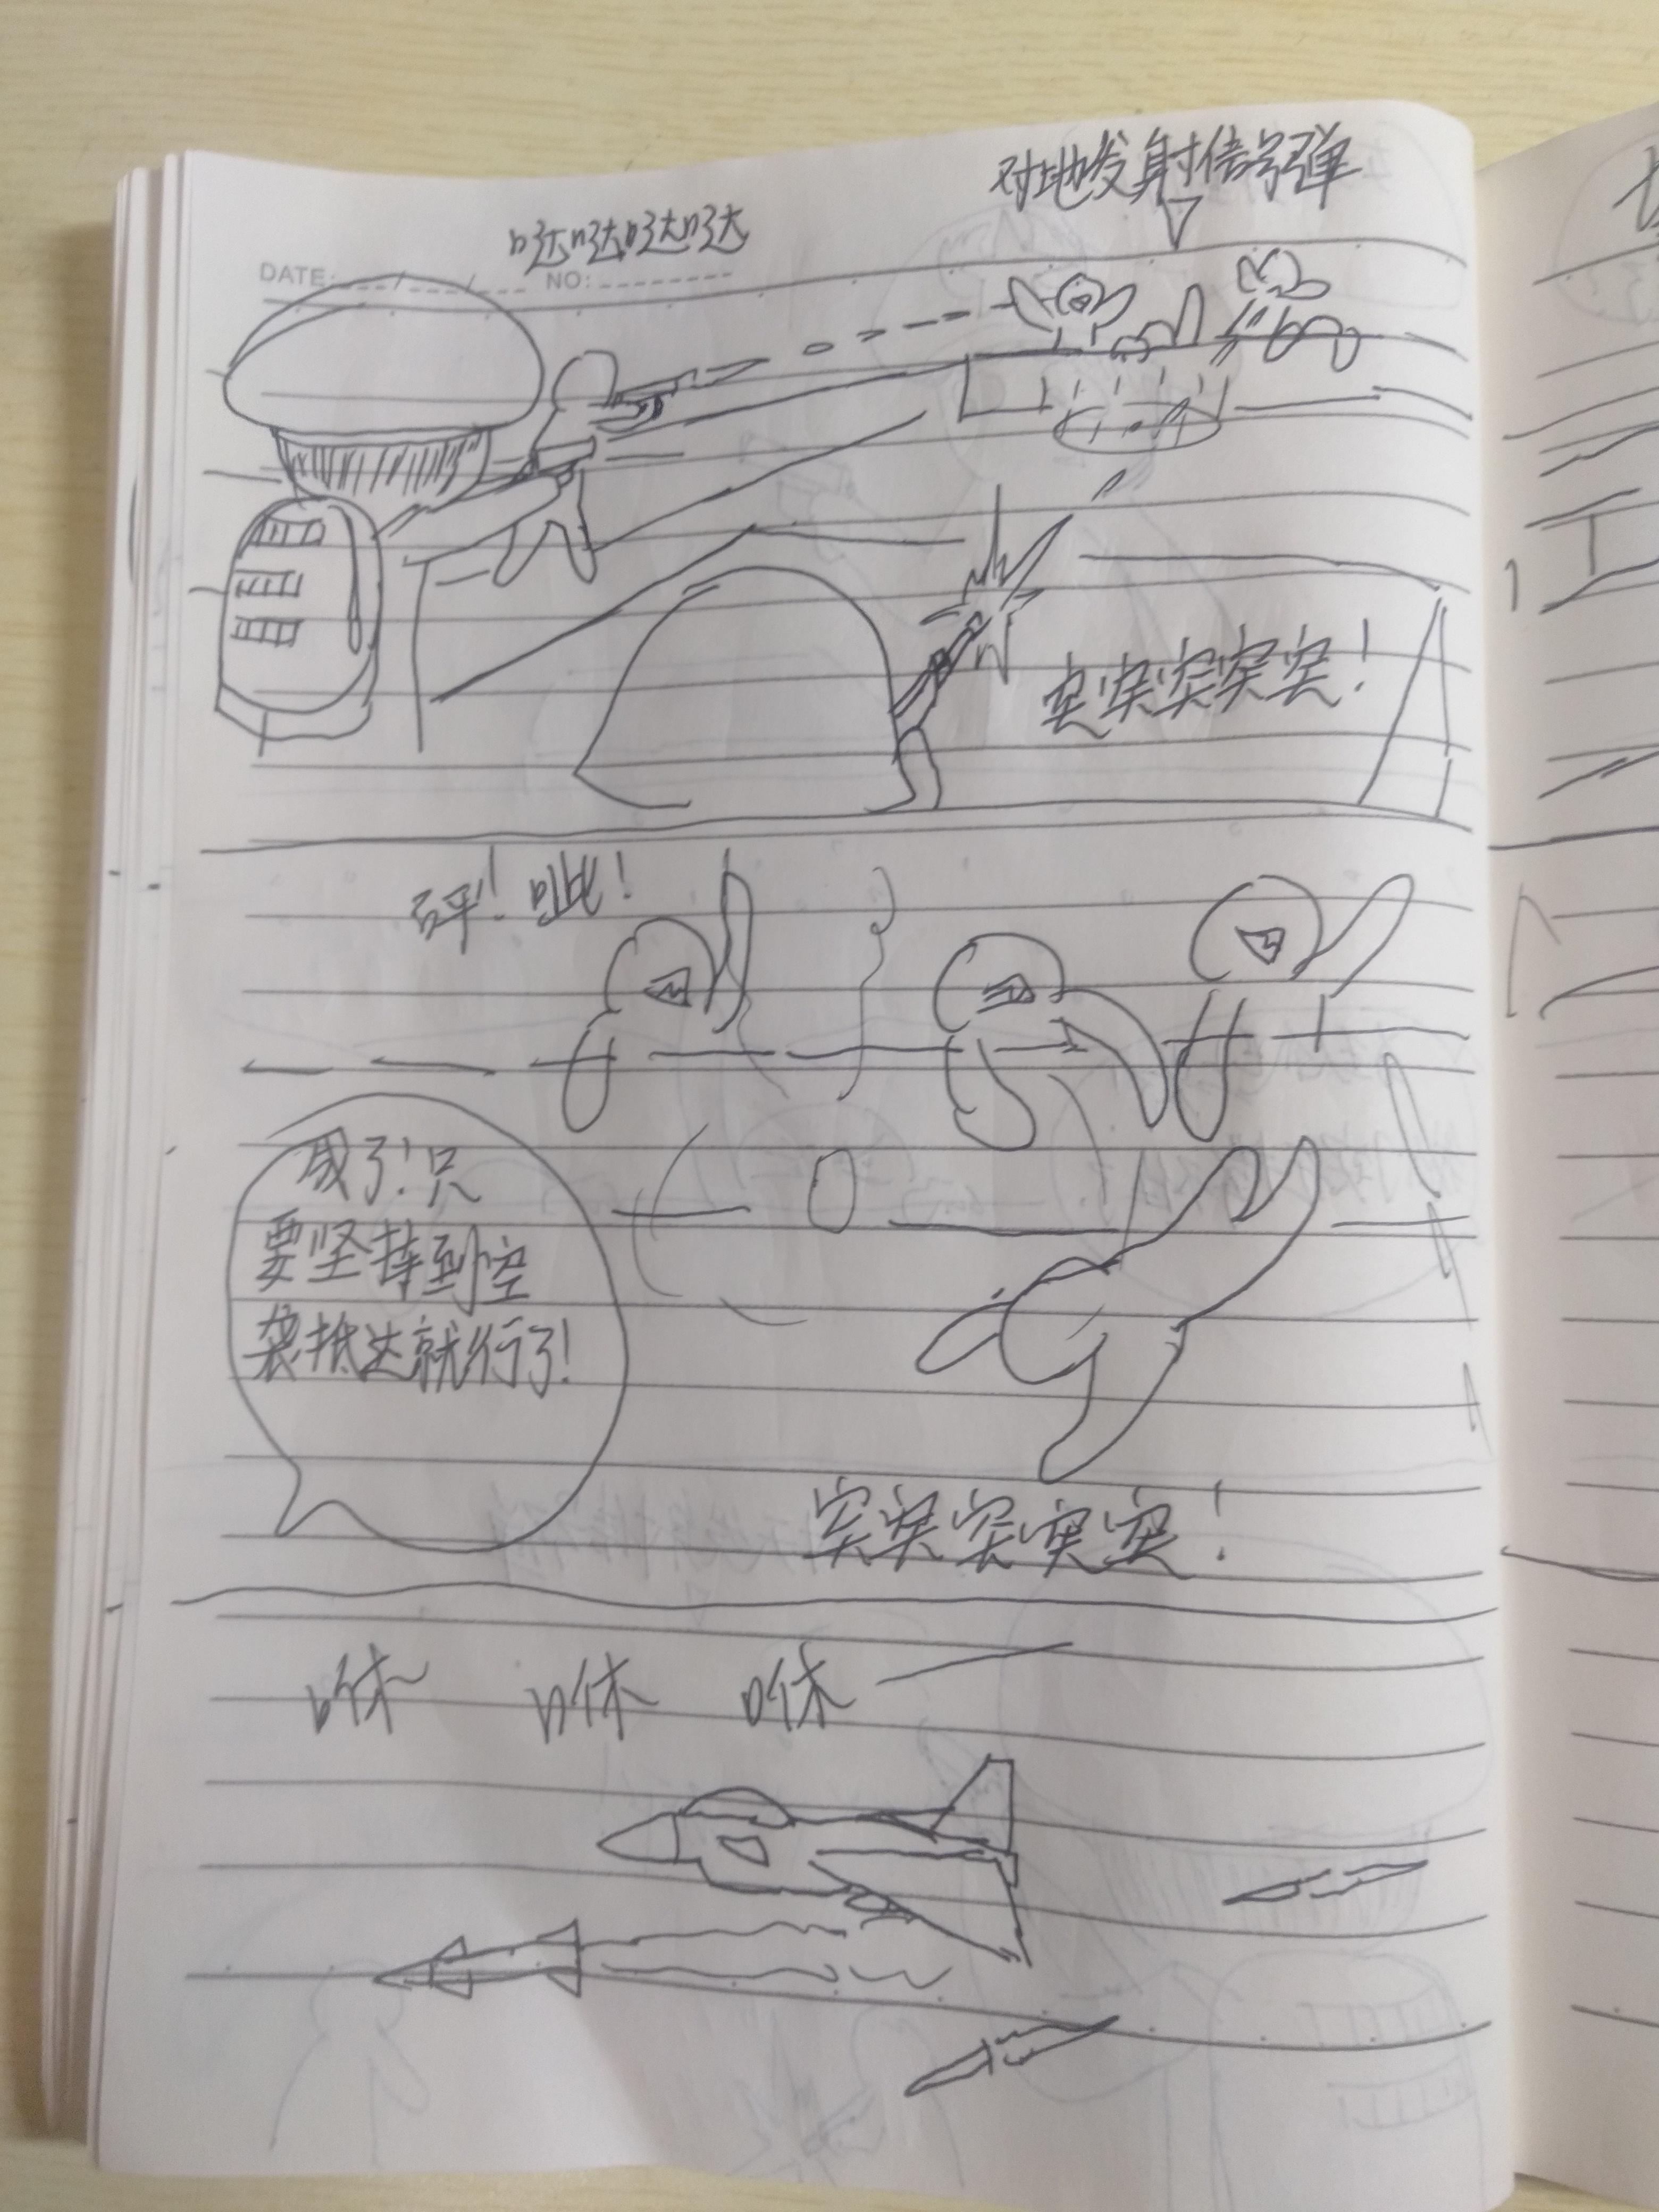 对地发射信号弹
哒哒哒哒
DATE: / / NO:
突突突突突!
砰!呲!
成了!只
要坚持到空
袭抵达就行了!
突突突突突!
咻 咻 咻